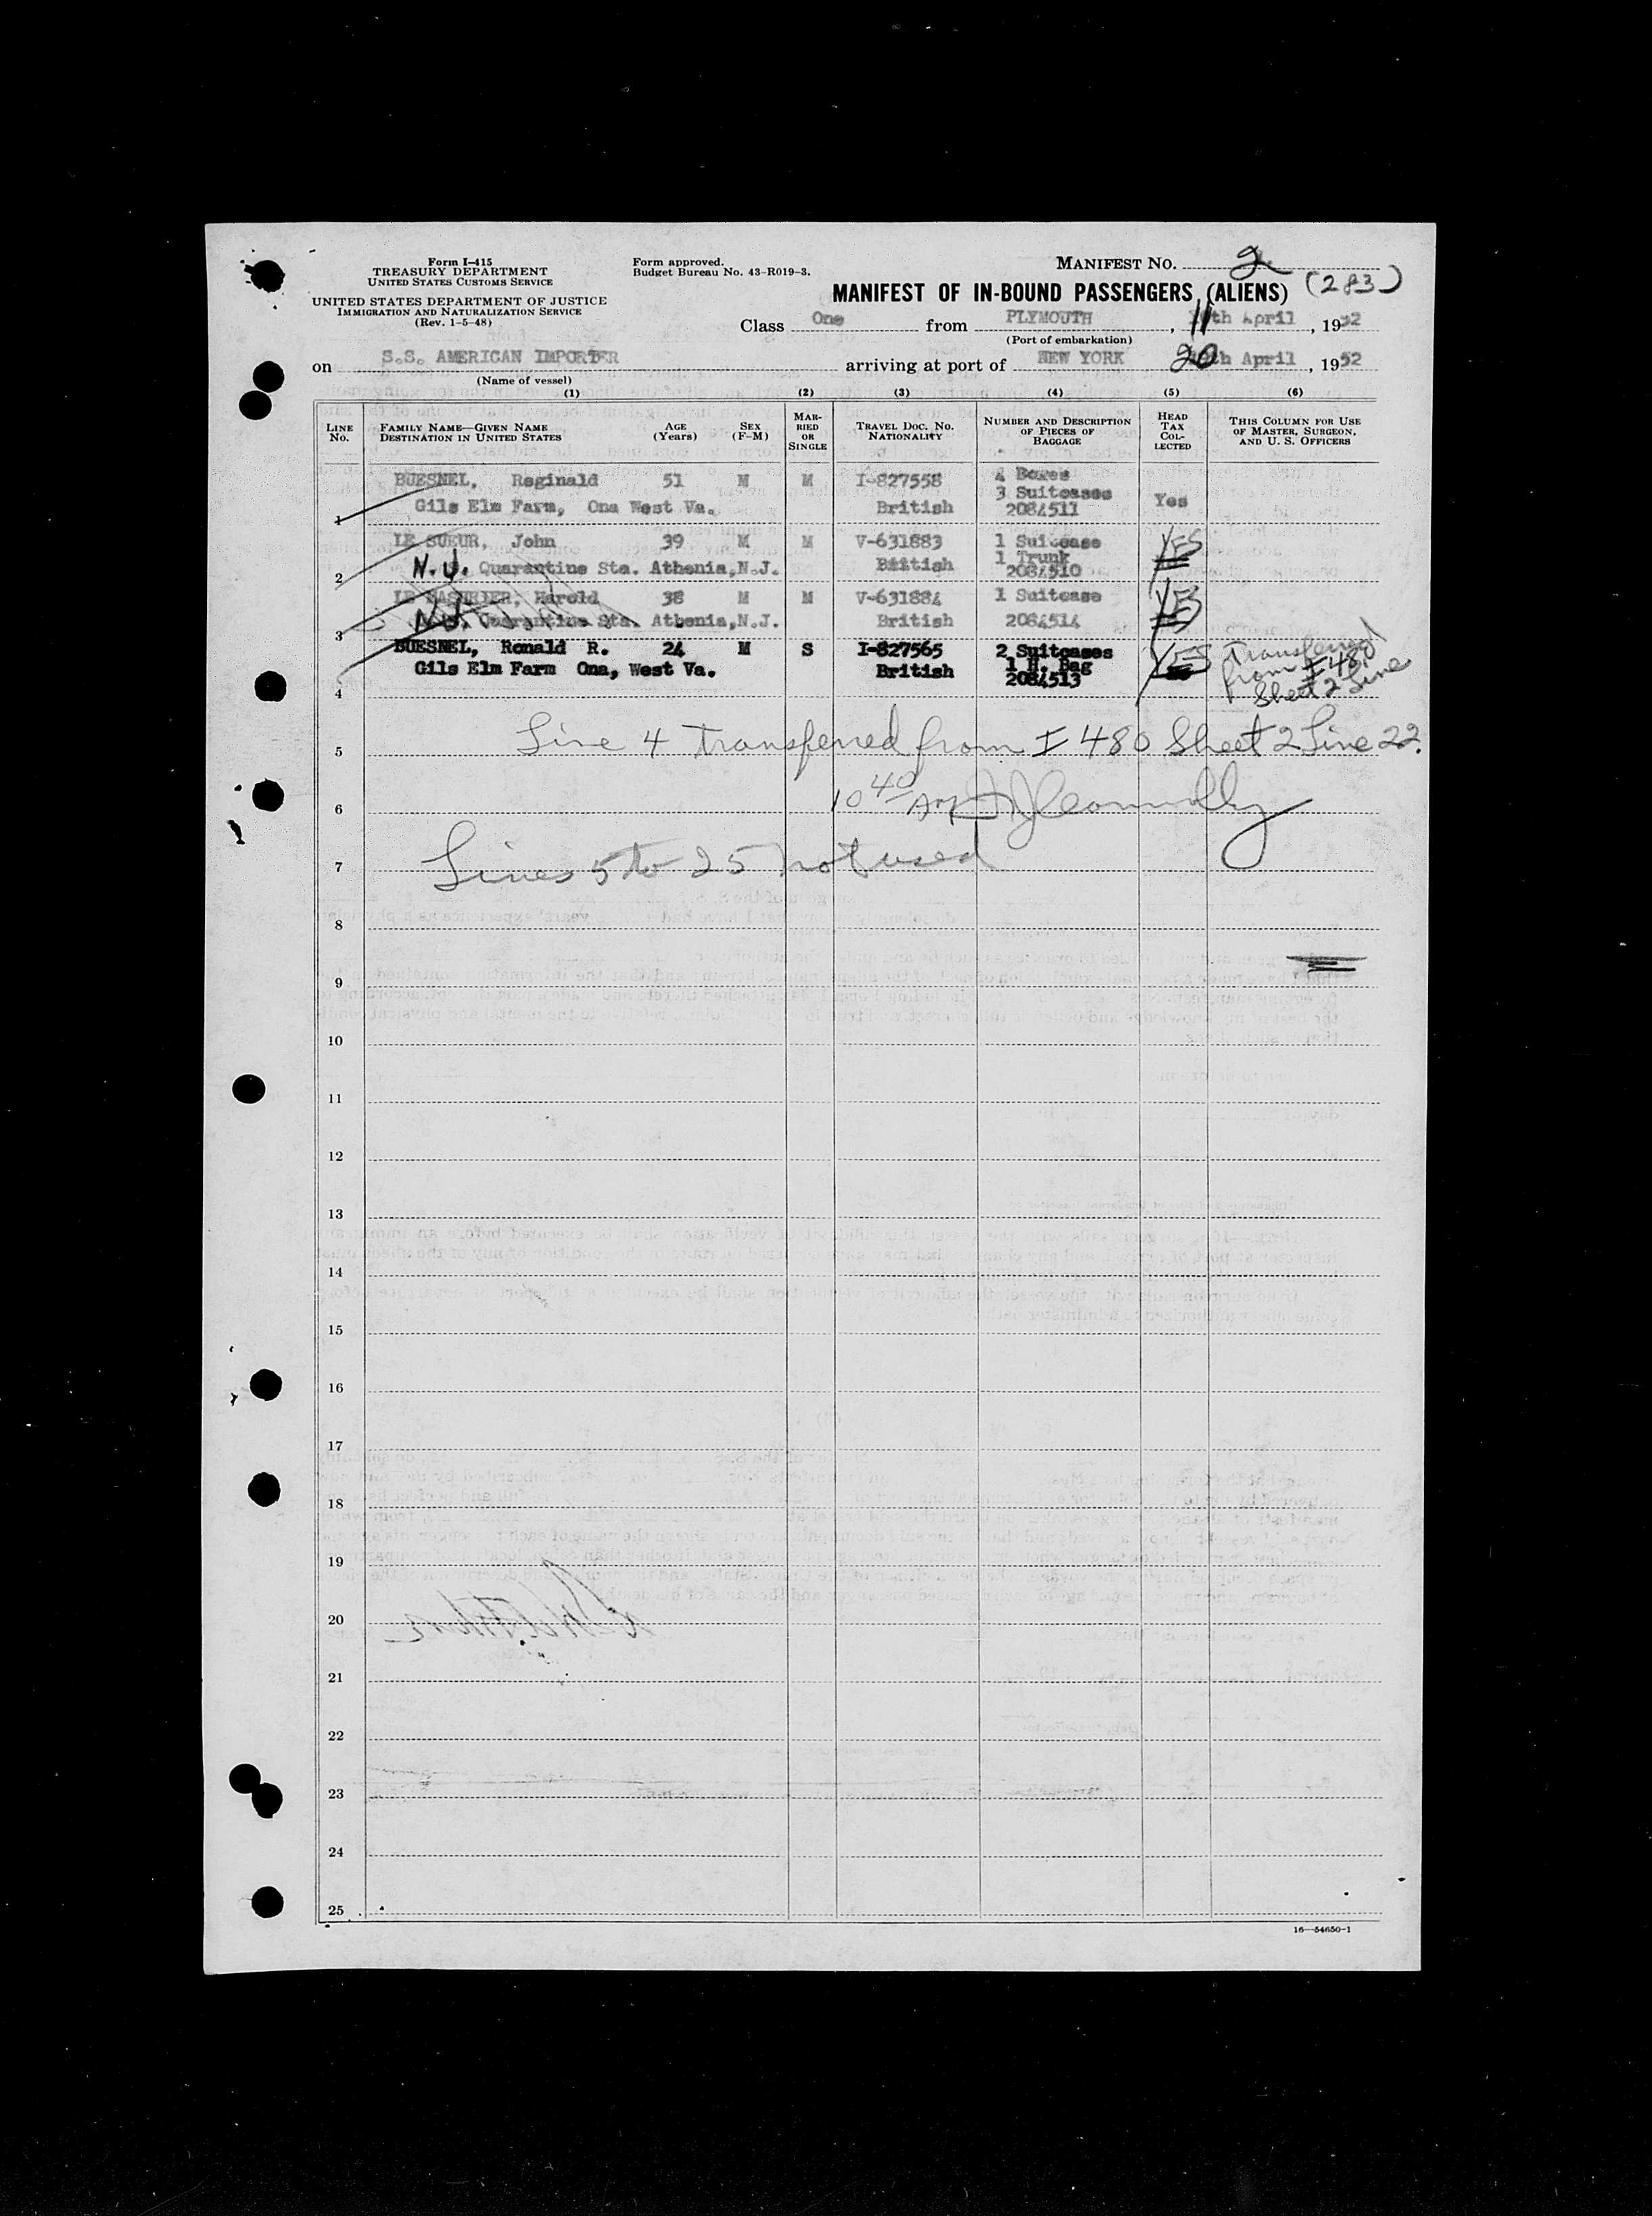 Form I-415
TREASURY DEPARTMENT
UNITED STATES CUSTOMS SERVICE
UNITED STATES DEPARTMENT OF JUSTICE
IMMIGRATION AND NATURALIZATION SERVICE
(Rev. 1-5-48)
Form approved.
Budget Bureau No. 43-R019-3.
MANIFEST NO. 2
MANIFEST OF IN-BOUND PASSENGERS (ALIENS) (283)
Class One from PLYMOUTH, 11th April, 1952
(Port of embarkation)
on S.S. AMERICAN IMPORTER arriving at port of NEW YORK 20th April, 1952
(Name of vessel)
(1) (2) (3) (4) (5) (6)
LINE NO. FAMILY NAME—GIVEN NAME DESTINATION IN UNITED STATES AGE (Years) SEX (F-M) MARRIED OR SINGLE TRAVEL DOC. NO. NATIONALITY NUMBER AND DESCRIPTION OF PIECES OF BAGGAGE HEAD TAX COLLECTED THIS COLUMN FOR USE OF MASTER, SURGEON, AND U. S. OFFICERS
BUESNEL, Reginald 51 M M I-827558 4 Boxes
3 Suitcases
1 Gils Elm Farm, Ona West Va. British 2084511 Yes
LE SUEUR, John 39 M M V-631883 1 Suitcase
1 Trunk
2 N.J. Quarantine Sta. Athenia, N.J. British 2084510 YES
LE MASURIER, Harold 38 M M V-631884 1 Suitcase
3 N.J. Quarantine Sta. Athenia, N.J. British 2084514 YES
BUESNEL, Ronald R. 24 M S I-827565 2 Suitcases
1 H. Bag
4 Gils Elm Farm Ona, West Va. British 2084513 YES
Transferred
from I 480
Sheet 2 Line
5 Line 4 transferred from I 480 Sheet 2 Line 22.
6 10 40 AM Connolly
7 Lines 5 to 25 not used
8
9
10
11
12
13
14
15
16
17
18
19
20
21
22
23
24
25
16—54650-1